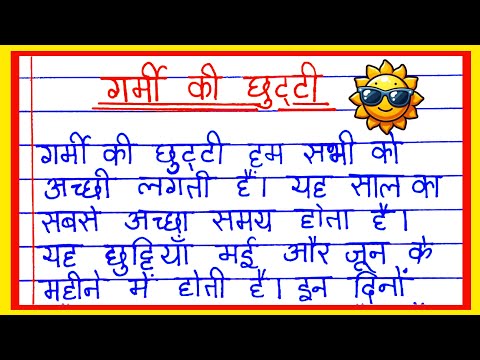 गर्मी की छुट्टी
गर्मी की छुट्टी हम सभी को
अच्छी लगती हैं। यह साल का
सबसे अच्छा समय होता है।
यह छुट्टियाँ मई और जून के
महीने में होती है। इन दिनों